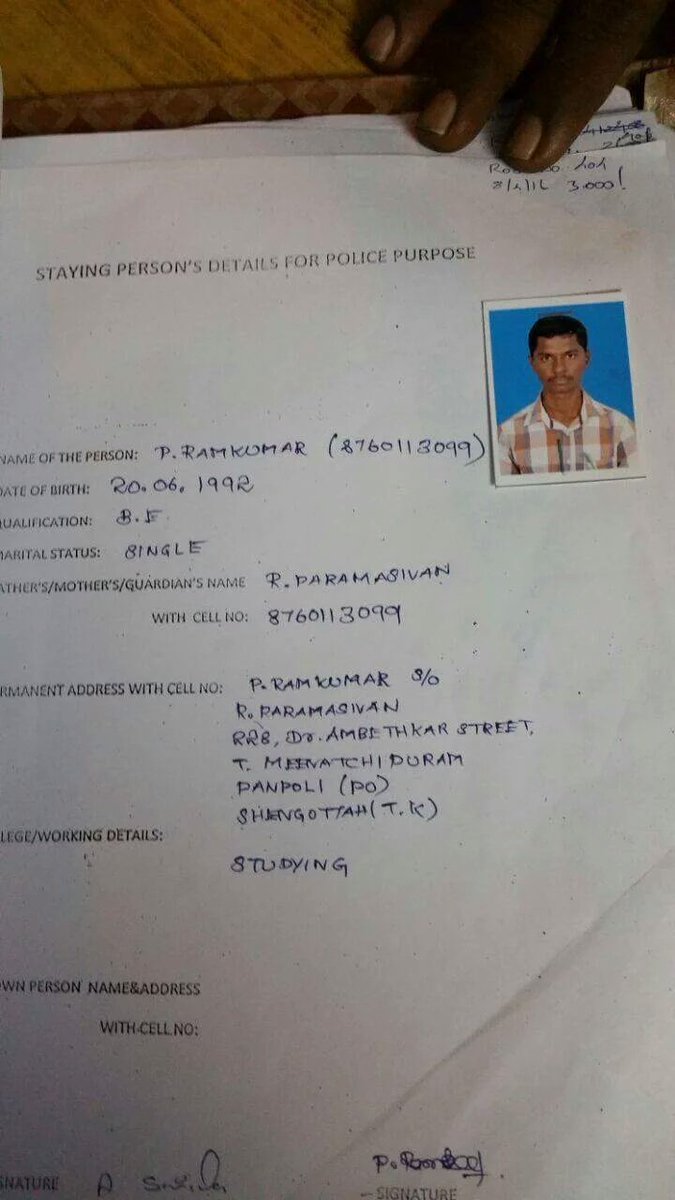 8/4/16 3.000/
STAYING PERSON'S DETAILS FOR POLICE PURPOSE
NAME OF THE PERSON: P. RAMKUMAR (8760113099)
DATE OF BIRTH: 20.06.1992
QUALIFICATION: B.E.
MARITAL STATUS: SINGLE
ATHER'S/MOTHER'S/GUARDIAN'S NAME R. PARAMASIVAN
WITH CELL NO: 8760113099
RMANENT ADDRESS WITH CELL NO: P. RAMKUMAR S/O
R. PARAMASIVAN
228, Dr. AMBETHKAR STREET,
T. MEENATCHIPURAM
PANPOLI (PO)
SHENGOTTAH (T.K)
LEGE/WORKING DETAILS:
STUDYING
OWN PERSON NAME&ADDRESS
WITH CELL NO:
GNATURE
SIGNATURE